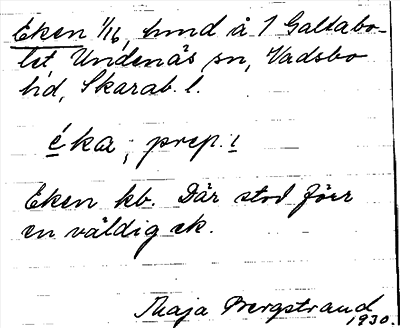 Eken 1/16, hmd å 1 Galtabo-
let, Undenäs sn, Vadsbo
hd, Skarab. l.
éka; prep. i
Eken kb. Där stod förr
en väldig ek.
Maja Bergstrand
1930.